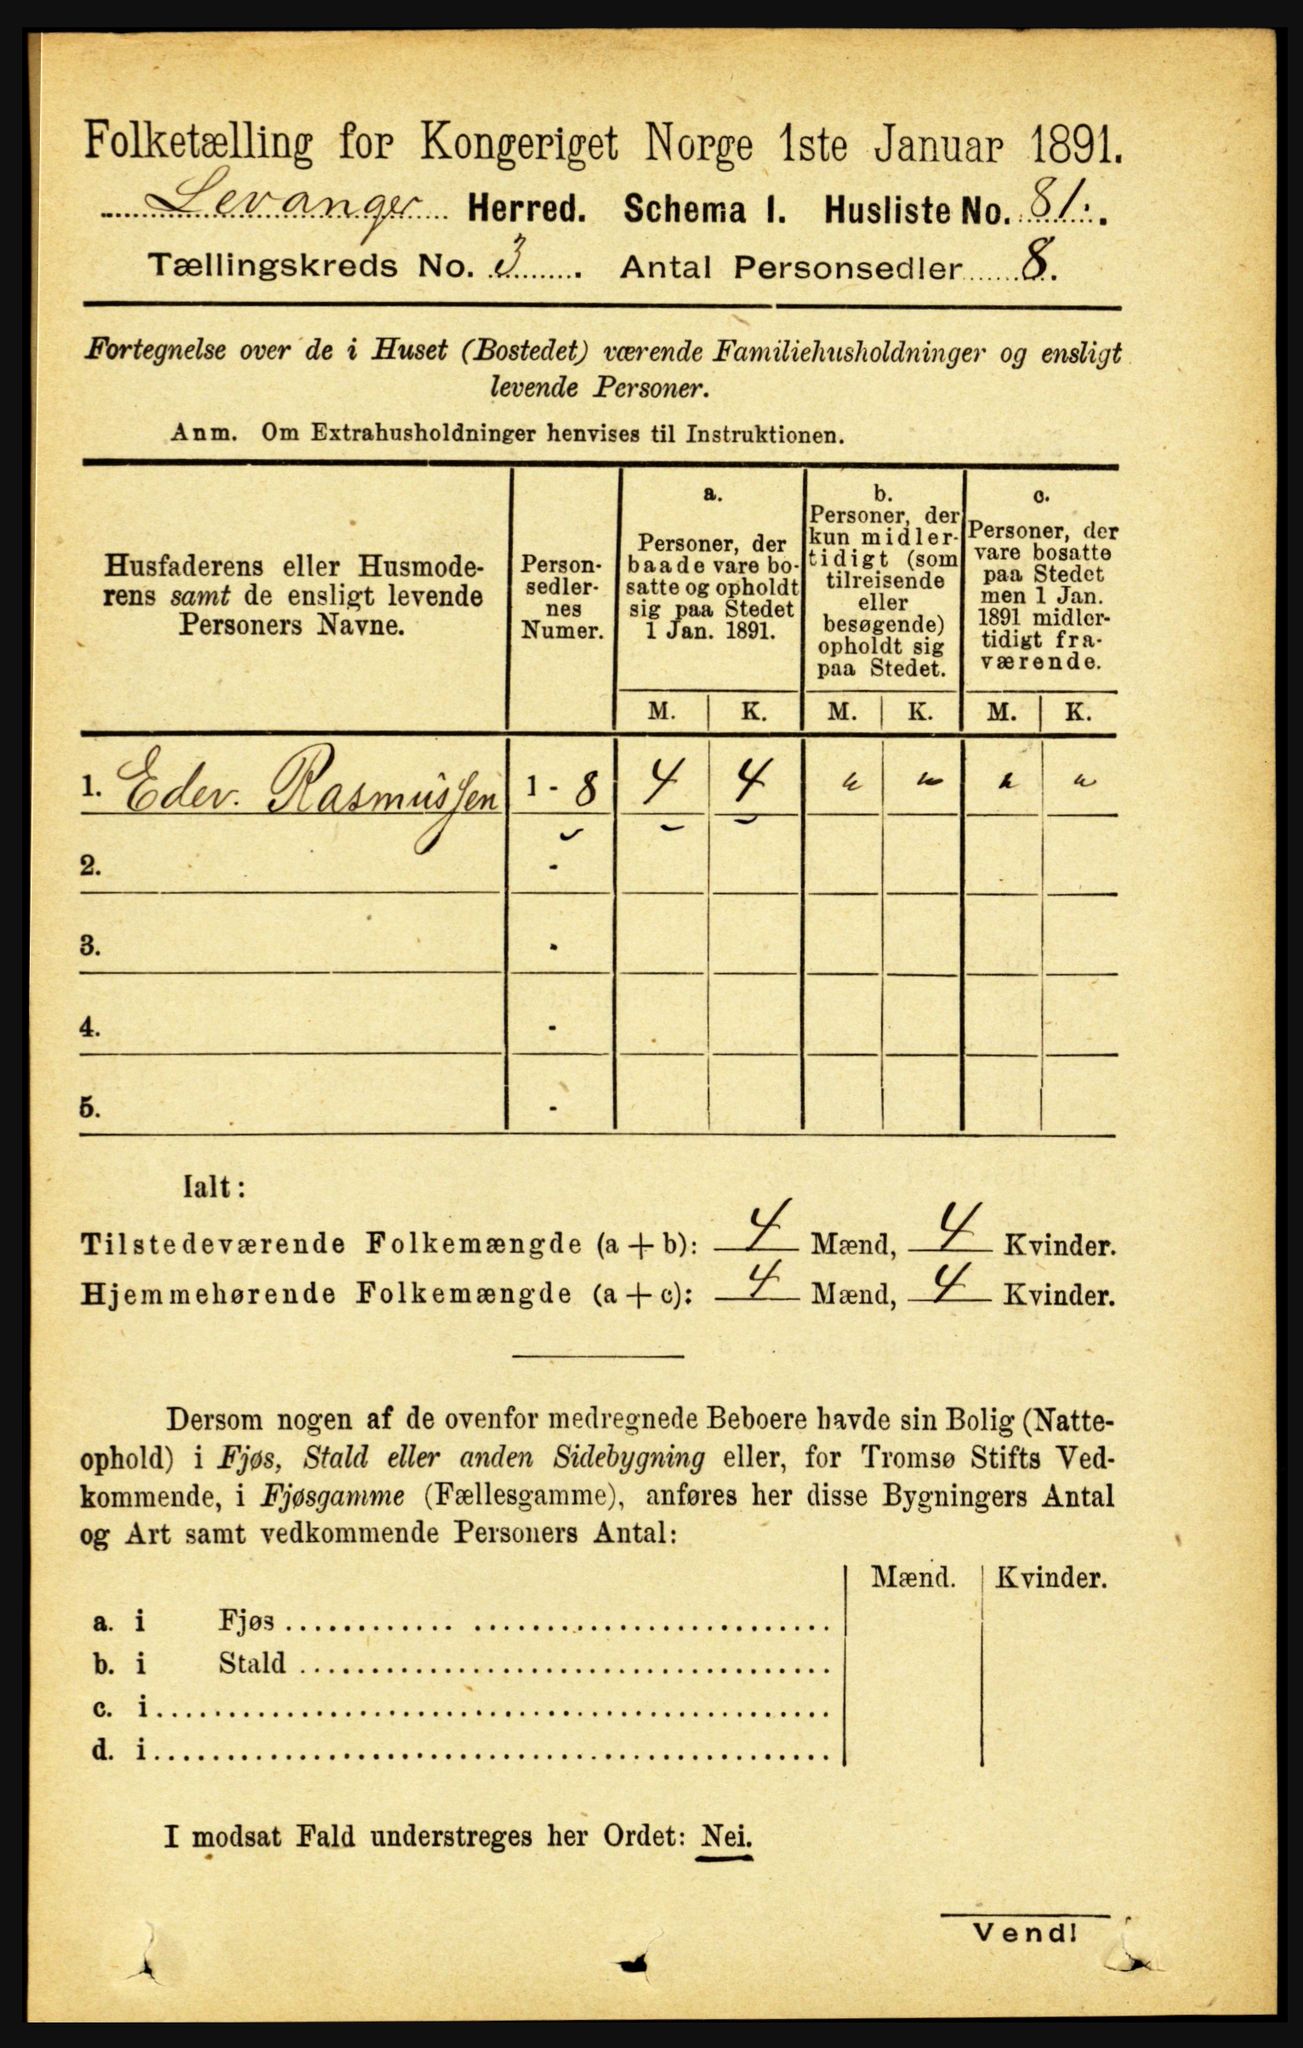 Folketælling for Kongeriget Norge 1ste Januar 1891.
Levanger Herred. Schema I. Husliste No. 81.
Tællingskreds No. 3. Antal Personsedler 8.
Fortegnelse over de i Huset (Bostedet) værende Familiehusholdninger og ensligt
levende Personer.
Anm. Om Extrahusholdninger henvises til Instruktionen.
Husfaderens eller Husmode-
rens samt de ensligt levende
Personers Navne.
Person-
sedler-
nes
Numer.
a.
Personer, der
baade vare bo-
satte og opholdt
sig paa Stedet
1 Jan. 1891.
b.
Personer, der
kun midler-
tidigt (som
tilreisende
eller
besøgende)
opholdt sig
paa Stedet.
c.
Personer, der
vare bosatte
paa Stedet
men 1 Jan.
1891 midler-
tidigt fra-
værende.
M. K. M. K. M. K.
1. Edev. Rasmussen 1 - 8 4 4 " " " "
2. -
3. -
4. -
5. -
Ialt:
Tilstedeværende Folkemængde (a + b): 4 Mænd, 4 Kvinder.
Hjemmehørende Folkemængde (a + c): 4 Mænd, 4 Kvinder.
Dersom nogen af de ovenfor medregnede Beboere havde sin Bolig (Natte-
ophold) i Fjøs, Stald eller anden Sidebygning eller, for Tromsø Stifts Ved-
kommende, i Fjøsgamme (Fællesgamme), anføres her disse Bygningers Antal
og Art samt vedkommende Personers Antal:
Mænd. Kvinder.
a. i Fjøs
b. i Stald
c. i
d. i
I modsat Fald understreges her Ordet: Nei.
Vend!